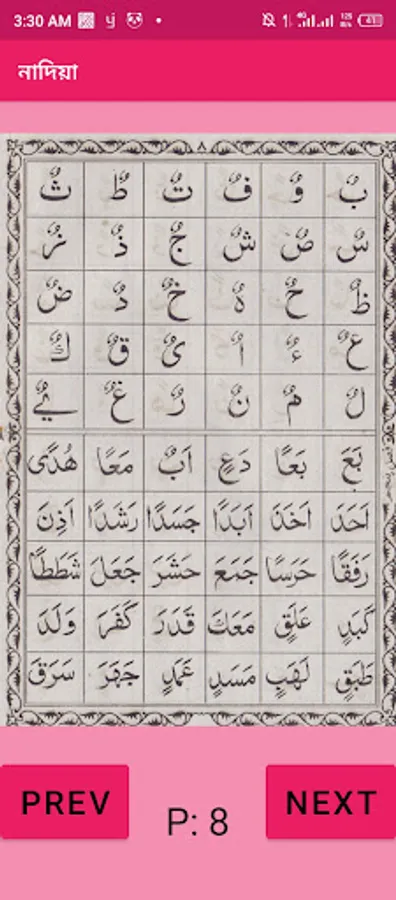 3:30 AM
নাদিয়া
٨
بٌ وٌ فٌ تٌ طٌ ثٌ
سٌ صٌ شٌ جٌ ذٌ زٌ
ظٌ حٌ هٌ خٌ دٌ ضٌ
عٌ ءٌ اٌ ىٌ قٌ كٌ
لٌ مٌ نٌ رٌ غٌ ےٌ
بَعَ بَعًا دَعٍ اَبٌ مَعًا هُدًى
اَحَدَ اَخَذَ اَبَدًا جَسَدًا رَشَدًا اَذِنَ
رَفَقًا حَرَسًا جَمَعَ حَشَرَ جَعَلَ شَطَطًا
كَبَدٍ عَلَقٍ مَعَكَ قَدَرَ كَفَرَ وَلَدَ
طَبَقٍ لَهَبٍ مَسَدٍ عَمَدٍ جَهَرَ سَرَقَ
PREV P: 8 NEXT